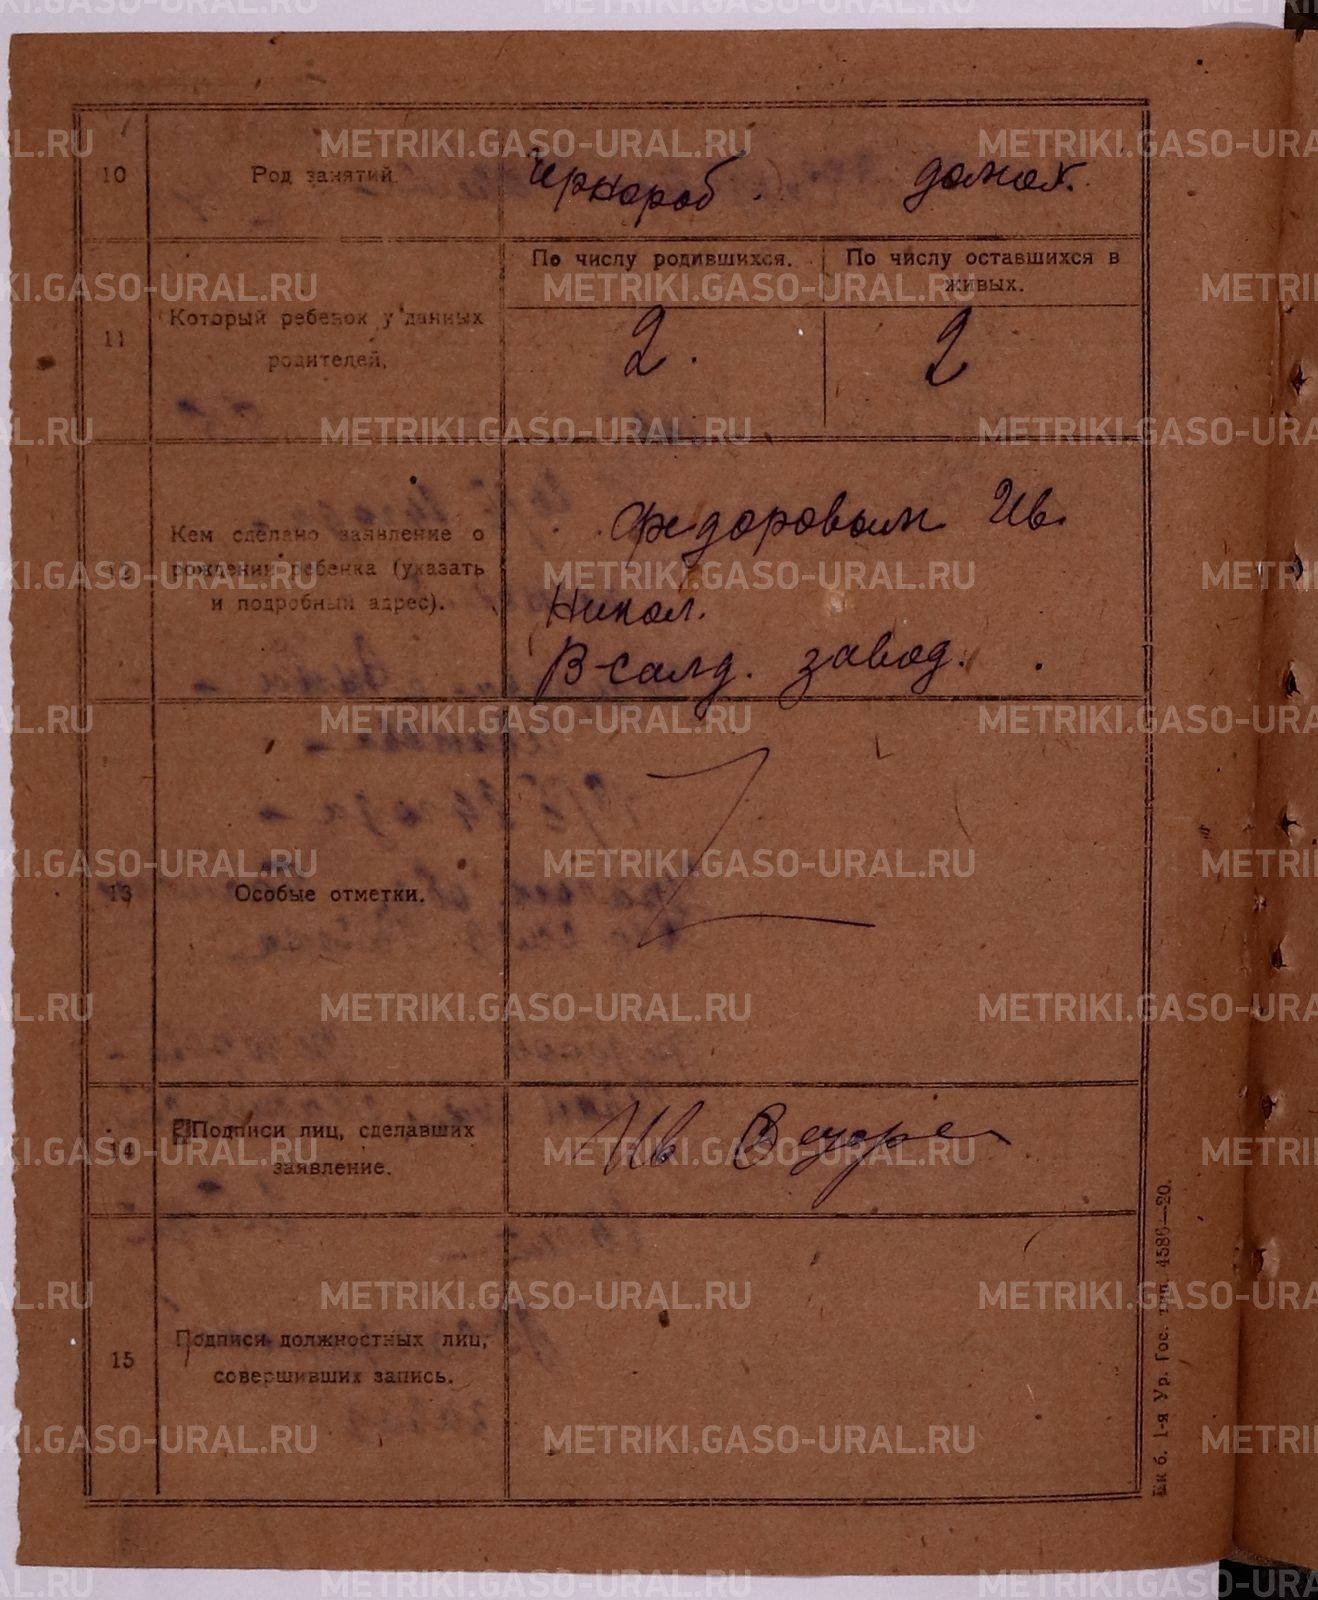 10 Род занятий. Чернораб. домох.
По числу родившихся. По числу оставшихся в
живых.
11 Который ребенок у данных
родителей. 2. 2
Кем сделано заявление о Федоровым Ив.
12 рождении ребенка (указать
и подробный адрес). Никол.
В-салд. завод.
13 Особые отметки.
14 Подписи лиц, сделавших
заявление. Ив
15 Подписи должностных лиц,
совершивших запись.
Ек б. 1-я Ур. Гос. тип. 4586—20.
METRIKI.GASO-URAL.RU